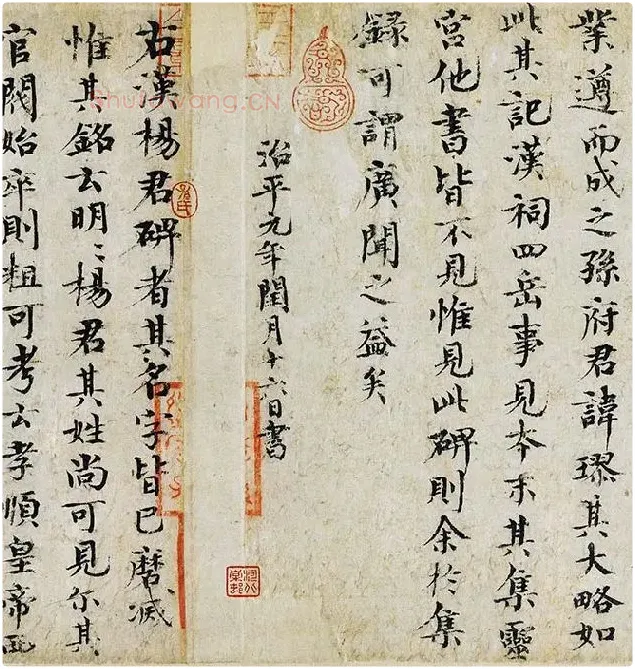 業遵而成之孫府君諱璆其大略如
此其記漢祠四岳事見夲末其集靈
宮他書皆不見惟見此碑則余於集
録可謂廣聞之益矣
治平元年閏月十六日書
右漢楊君碑者其名字皆已磨滅
惟其銘云明〻楊君其姓尚可見尔其
官閥始卒則粗可考云孝順皇帝西
Shufawang.CN